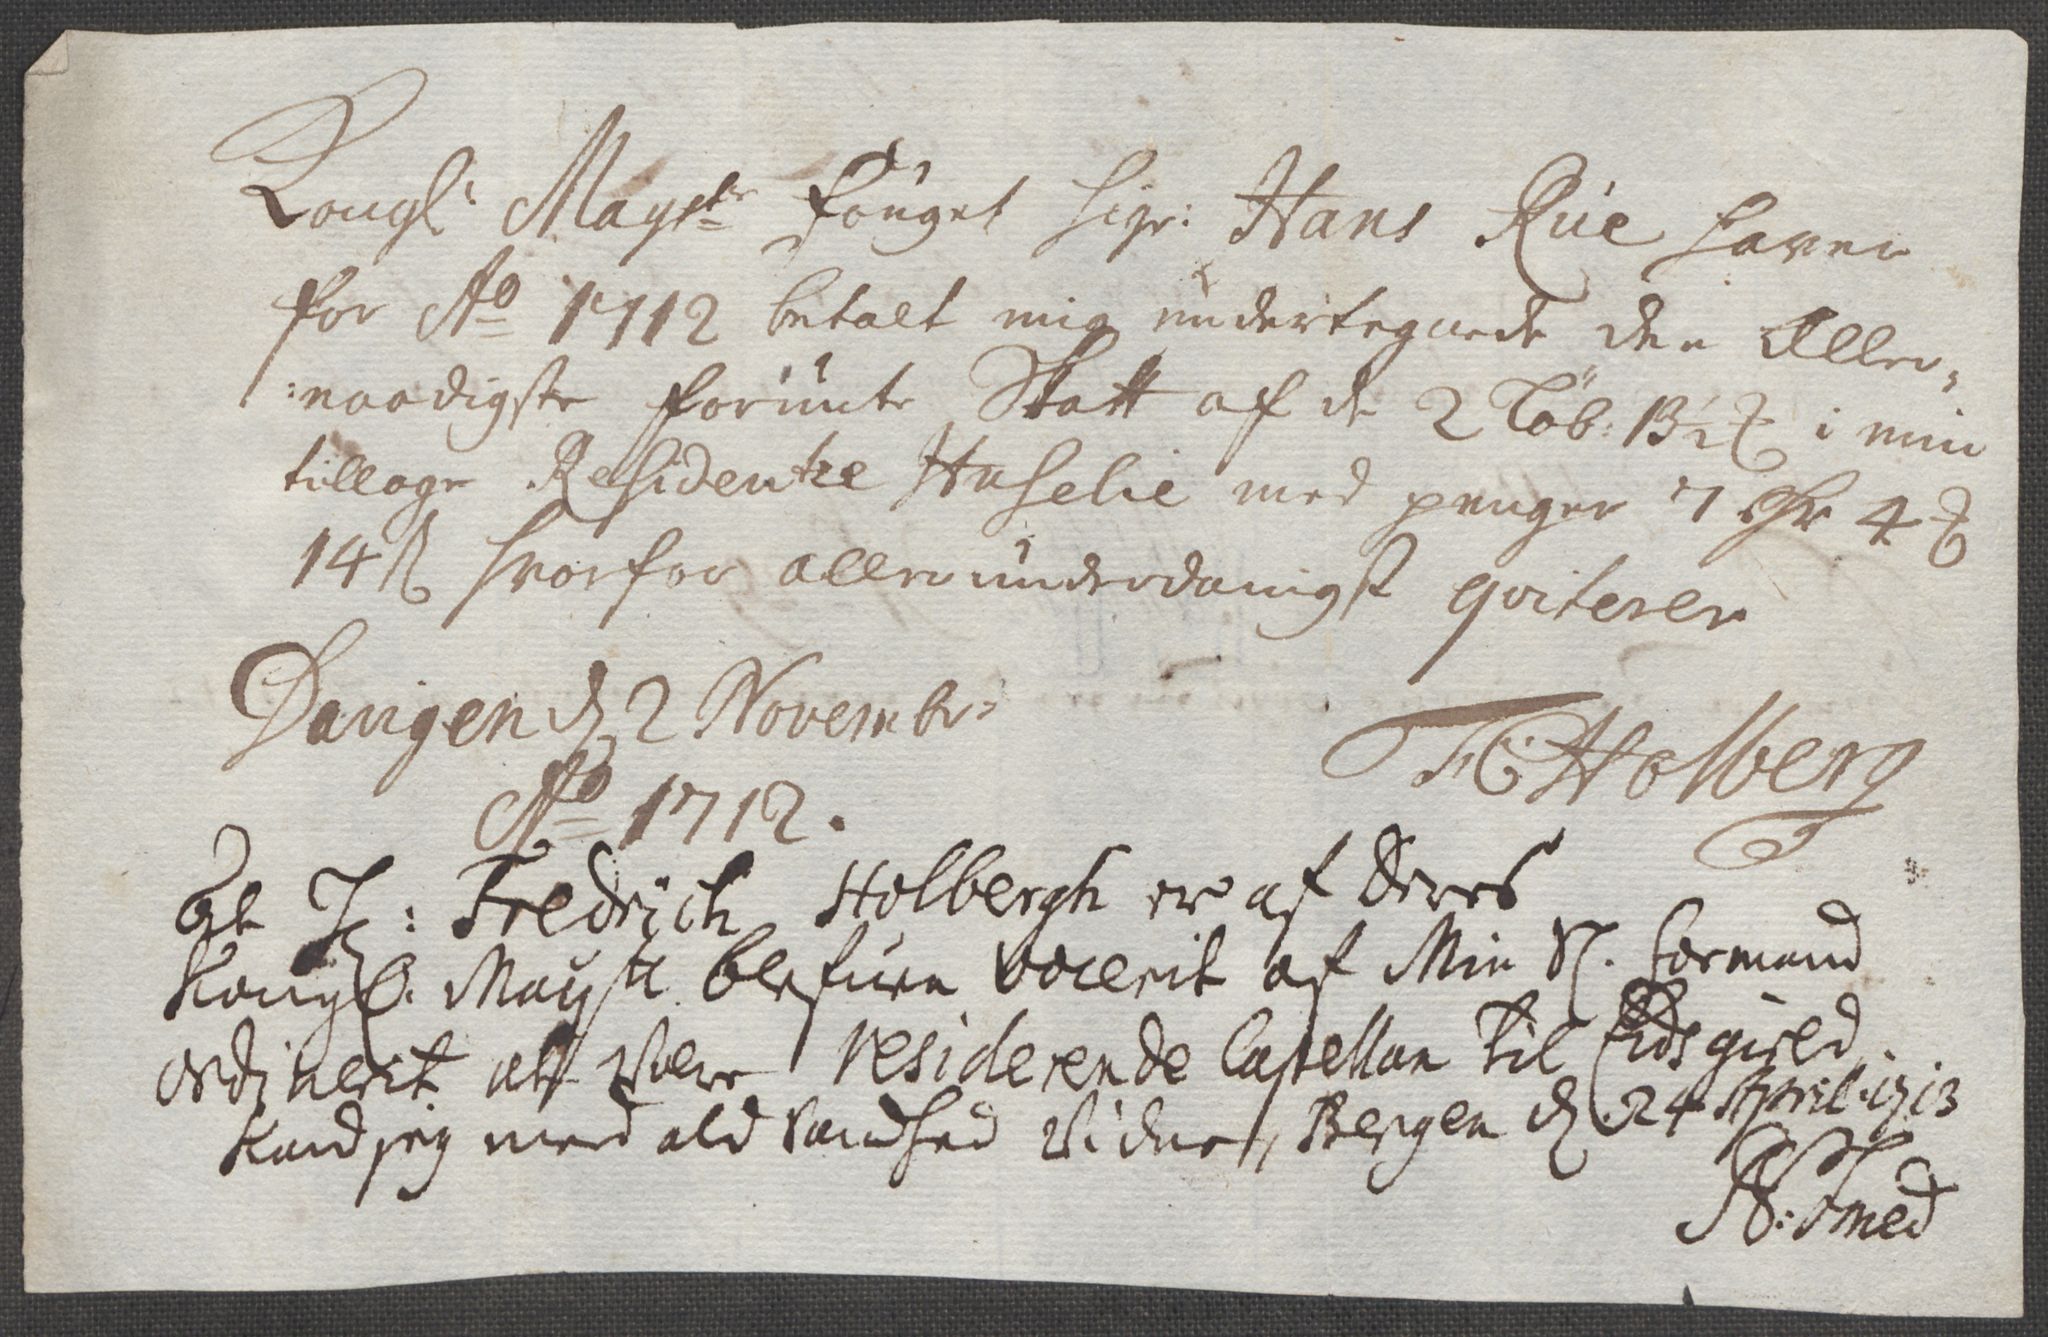 Kongl: Maÿsts fouget Sigr: Hans Rüe haver
for Ao 1712 betalt mig undertegnede den Aller-
:naadigste forunte Skatt af de 2 Løb: 13½ i min
tillagde Residentze Huselie med penger 7 dr 4
14 s hvorfor allerunderdanigst qviterer
Davigen d 2 Novembr:
Ao 1712.
F C Holberg
At Hr: Fredrich Holbergh er af Deres
Kongl. Mayst. vocerit af Min Sl. formand
ordinerit att være residerende Capellan til Eids gield
Kand jeg med ald Sandhed Vidne, Bergen d. 24 April 1713
N: Smed